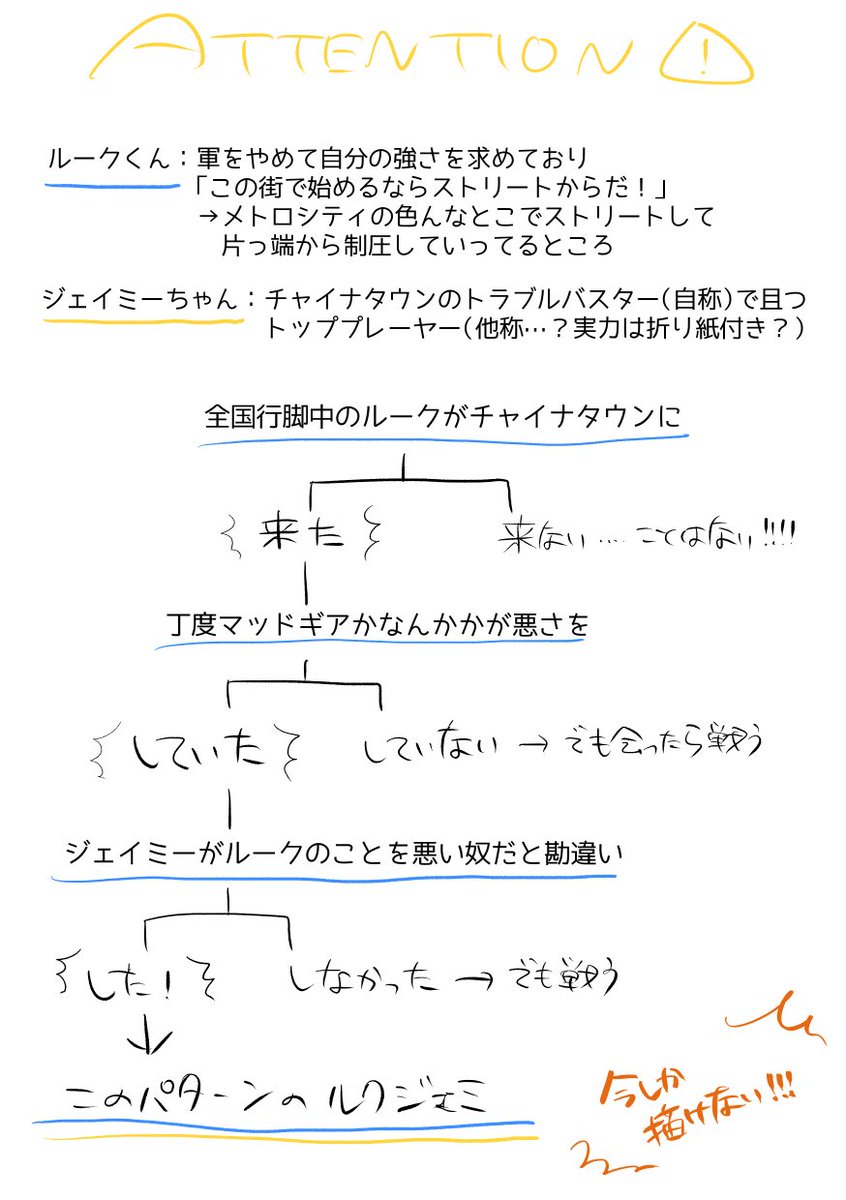 ATTENTION !
ルークくん：軍をやめて自分の強さを求めており
「この街で始めるならストリートからだ！」
→メトロシティの色んなとこでストリートして
片っ端から制圧していってるところ
ジェイミーちゃん：チャイナタウンのトラブルバスター(自称)で且つ
トッププレーヤー(他称…？実力は折り紙付き？)
全国行脚中のルークがチャイナタウンに
来た 来ない…ことはない!!!!
丁度マッドギアかなんかかが悪さを
していた していない→でも会ったら戦う
ジェイミーがルークのことを悪い奴だと勘違い
した！ しなかった→でも戦う
このパターンのルクジェミ
今しか
描けない!!!